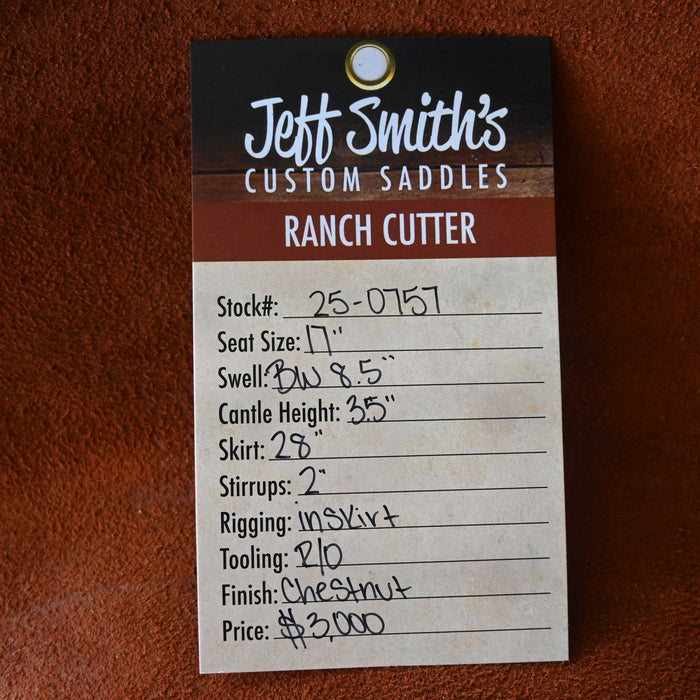 Jeff Smith's
CUSTOM SADDLES
RANCH CUTTER
Stock#: 25-0757
Seat Size: 17"
Swell: BW 8.5"
Cantle Height: 3.5"
Skirt: 28"
Stirrups: 2"
Rigging: inskirt
Tooling: R/O
Finish: Chestnut
Price: $3,000